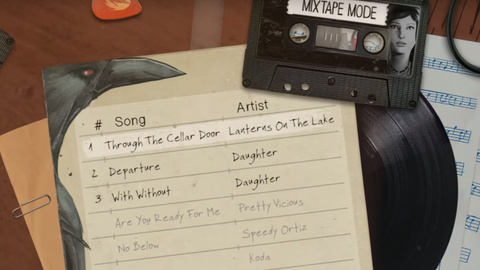 MIXTAPE MODE
# Song Artist
1 Through The Cellar Door Lanterns On The Lake
2 Departure Daughter
3 With Without Daughter
Are You Ready For Me Pretty Vicious
No Below Speedy Ortiz
Koda